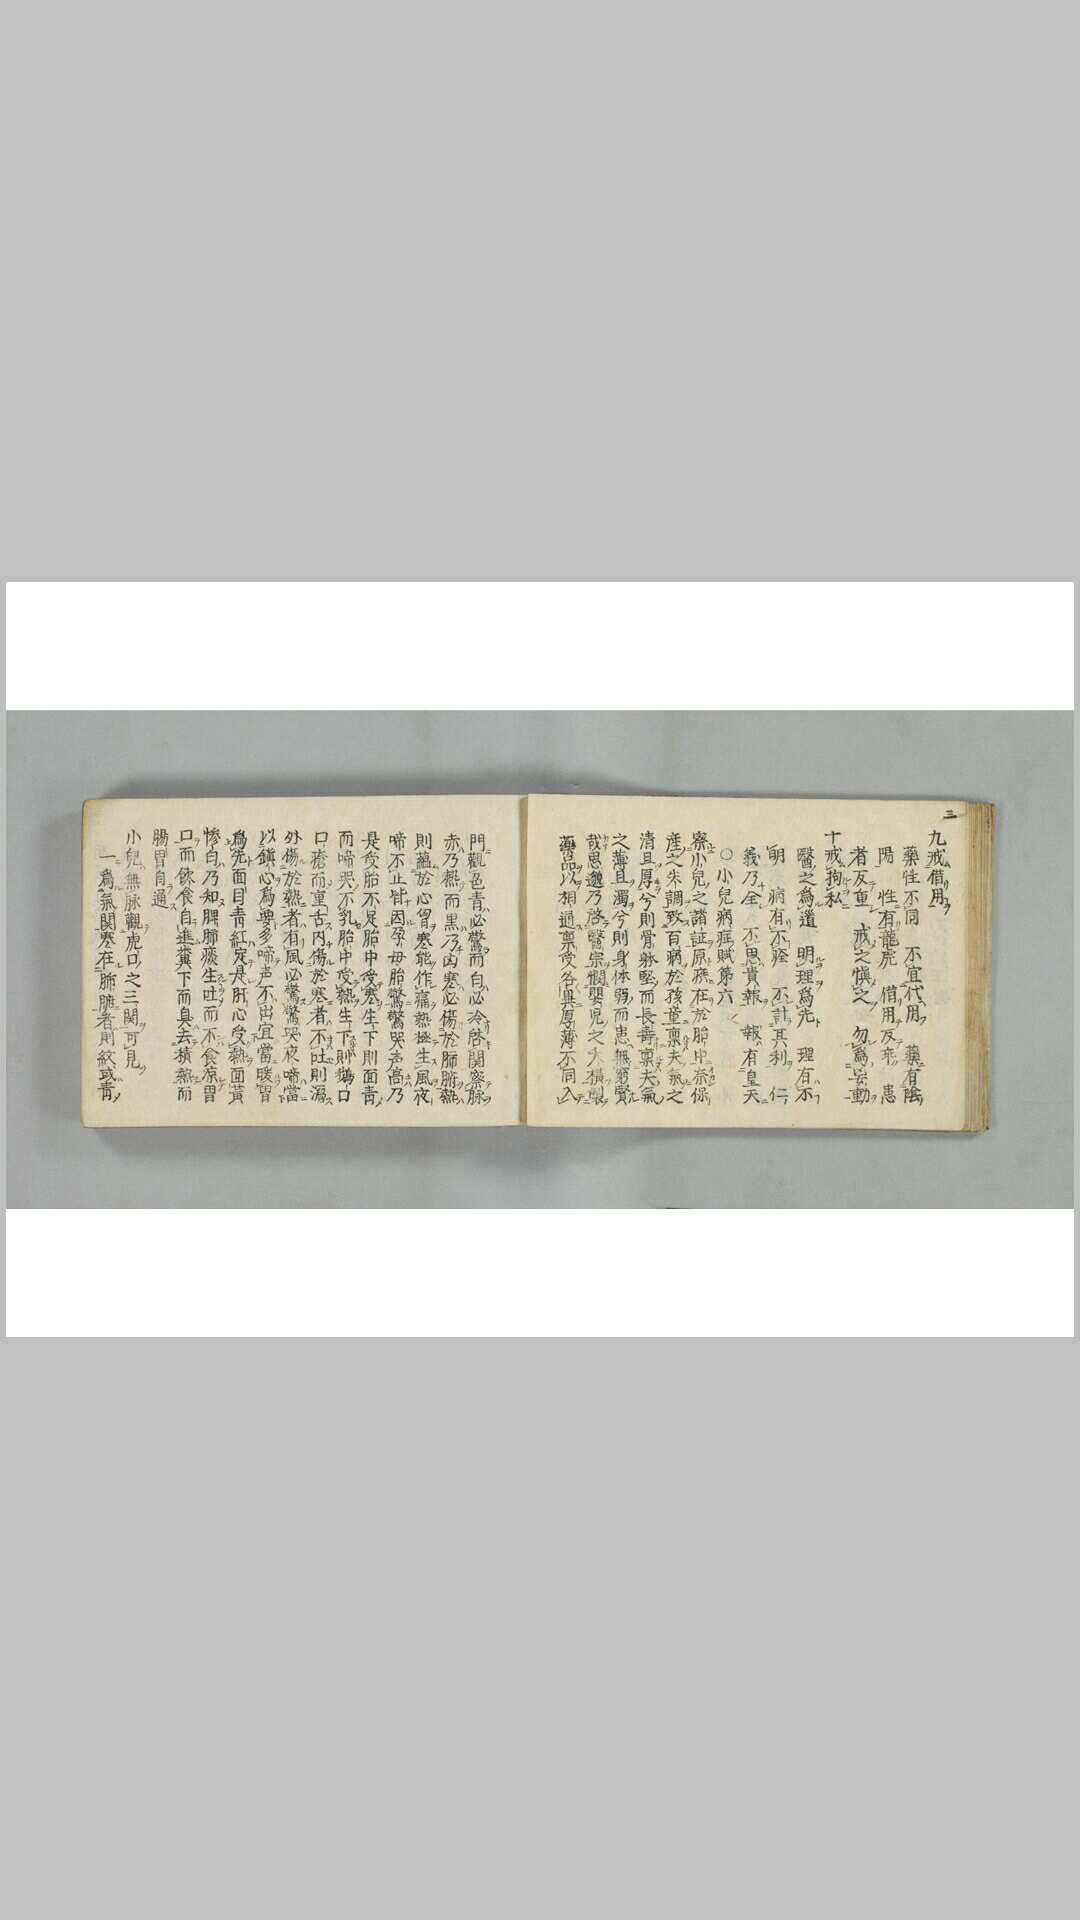 三
九戒借用
藥性不同 不宜代用 藥有陰
陽 性有龍虎 借用反乖 患
者反重 戒之愼之 勿爲妄動
十戒狥私
醫之爲道 明理爲先 理有不
明 病有不痊 不計其利 仁
義乃全 不思貴報 報有皇天
○小兒病症賦第六
察小兒之諸証原疾在於胎中奈保
産之失調致百病於孩童禀夫氣之
清且厚兮則骨肉堅而長壽禀夫氣
之薄且濁兮則身体弱而患無窮賢
哉思邈乃啓醫宗憫嬰児之 積製
藥品以相通禀受各異厚薄不同入
門觀色青必驚而白必冷啓関察脉
赤乃熱而黒乃凶寒必傷於肺腑熱
則蘊於心胃寒能作痛熱極生風夜
啼不止皆因孕母胎驚驚哭声高乃
是受胎不足胎中受寒生下則面青
而啼哭不乳胎中受熱生下則鵝口
口瘡而重舌内傷於寒者不吐則瀉
外傷於熱者有風必驚驚哭夜啼當
以鎮心爲要多啼声不出宜當暖胃
爲先面目青紅定是肝心受熱面黄
慘白乃知脾肺痰生吐而不食凉胃
口而飲食自進糞下而臭去積熱而
腸胃自通
小兒無脉觀虎口之三関可見
一爲氣関寒在肺臓者則紋或青